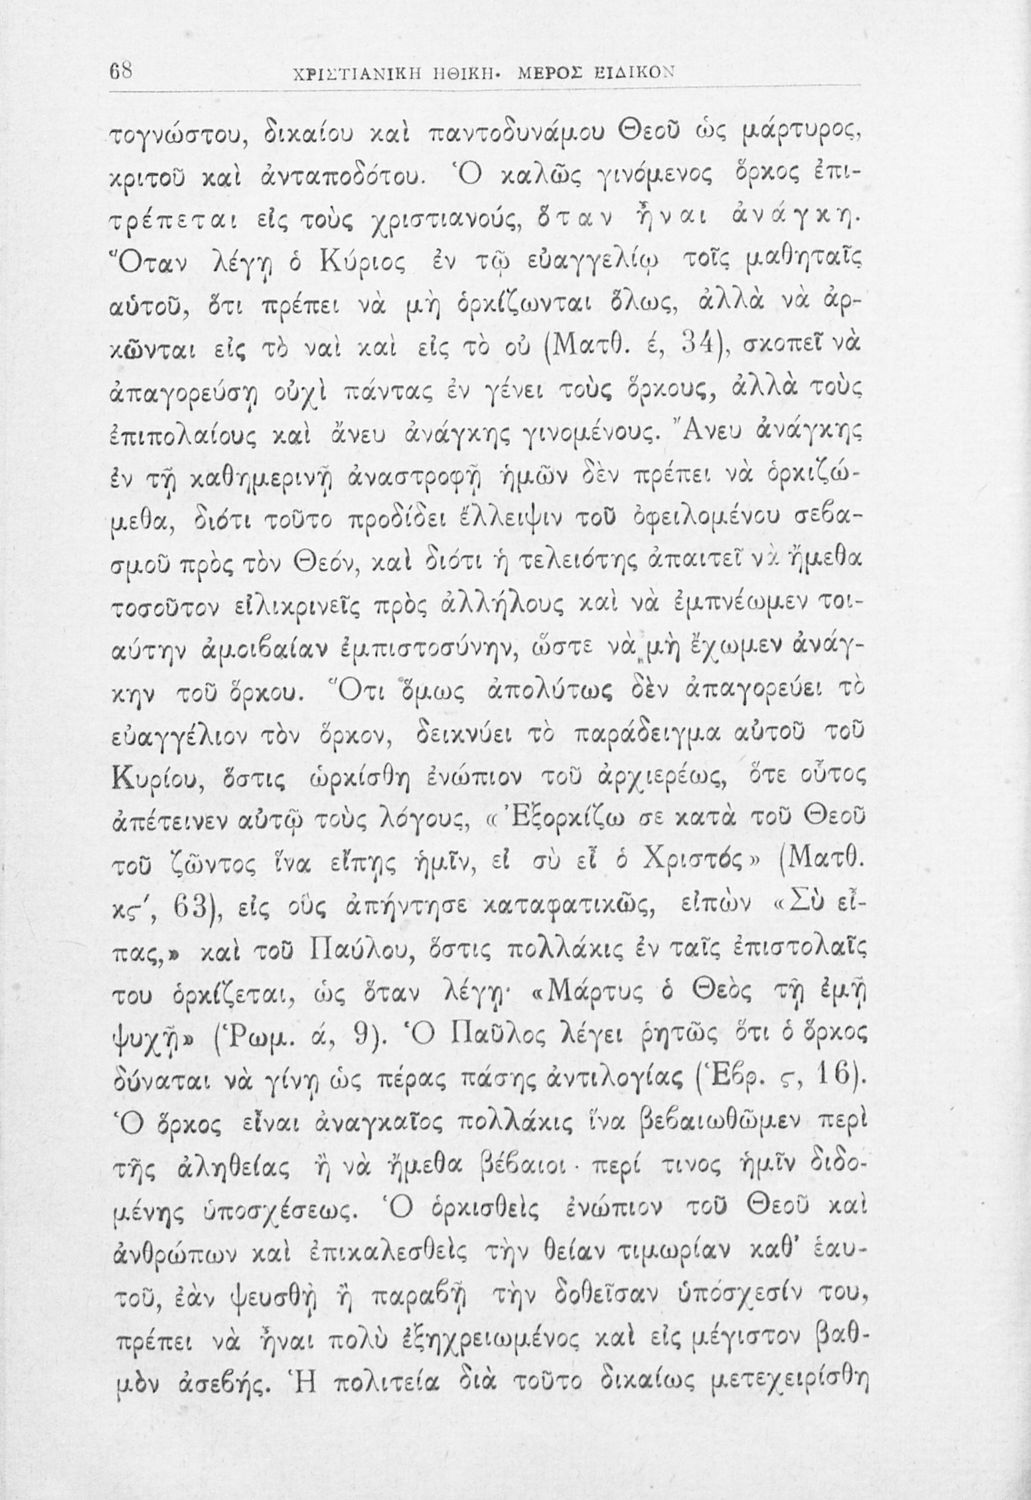 68 ΧΡΙΣΤΙΑΝΙΚΗ ΗΘΙΚΗ· ΜΕΡΟΣ ΕΙΔΙΚΟΝ
τογνώστου, δικαίου καὶ παντοδυνάμου Θεοῦ ὡς μάρτυρος,
κριτοῦ καὶ ἀνταποδότου. Ὁ καλῶς γινόμενος ὅρκος ἐπι-
τρέπεται εἰς τοὺς χριστιανούς, ὅταν ἦναι ἀνάγκη.
Ὅταν λέγῃ ὁ Κύριος ἐν τῷ εὐαγγελίῳ τοῖς μαθηταῖς
αὑτοῦ, ὅτι πρέπει νὰ μὴ ὁρκίζωνται ὅλως, ἀλλὰ νὰ ἀρ-
κῶνται εἰς τὸ ναὶ καὶ εἰς τὸ οὐ (Ματθ. έ, 34), σκοπεῖ νὰ
ἀπαγορεύσῃ οὐχὶ πάντας ἐν γένει τοὺς ὅρκους, ἀλλὰ τοὺς
ἐπιπολαίους καὶ ἄνευ ἀνάγκης γινομένους. Ἄνευ ἀνάγκης
ἐν τῇ καθημερινῇ ἀναστροφῇ ἡμῶν δὲν πρέπει νὰ ὁρκιζώ-
μεθα, διότι τοῦτο προδίδει ἔλλειψιν τοῦ ὀφειλομένου σεβα-
σμοῦ πρὸς τὸν Θεόν, καὶ διότι ἡ τελειότης ἀπαιτεῖ νὰ ἤμεθα
τοσοῦτον εἰλικρινεῖς πρὸς ἀλλήλους καὶ νὰ ἐμπνέωμεν τοι-
αύτην ἀμοιβαίαν ἐμπιστοσύνην, ὥστε νὰ μὴ ἔχωμεν ἀνάγ-
κην τοῦ ὅρκου. Ὅτι ὅμως ἀπολύτως δὲν ἀπαγορεύει τὸ
εὐαγγέλιον τὸν ὅρκον, δεικνύει τὸ παράδειγμα αὐτοῦ τοῦ
Κυρίου, ὅστις ὡρκίσθη ἐνώπιον τοῦ ἀρχιερέως, ὅτε οὗτος
ἀπέτεινεν αὐτῷ τοὺς λόγους, «Ἐξορκίζω σε κατὰ τοῦ Θεοῦ
τοῦ ζῶντος ἵνα εἴπῃς ἡμῖν, εἰ σὺ εἶ ὁ Χριστός» (Ματθ.
κϛ′, 63), εἰς οὓς ἀπήντησε καταφατικῶς, εἰπὼν «Σὺ εἶ-
πας,» καὶ τοῦ Παύλου, ὅστις πολλάκις ἐν ταῖς ἐπιστολαῖς
του ὁρκίζεται, ὡς ὅταν λέγῃ· «Μάρτυς ὁ Θεὸς τῇ ἐμῇ
ψυχῇ» (Ῥωμ. ά, 9). Ὁ Παῦλος λέγει ῥητῶς ὅτι ὁ ὅρκος
δύναται νὰ γίνῃ ὡς πέρας πάσης ἀντιλογίας (Ἑβρ. ϛ, 16).
Ὁ ὅρκος εἶναι ἀναγκαῖος πολλάκις ἵνα βεβαιωθῶμεν περὶ
τῆς ἀληθείας ἢ νὰ ἤμεθα βέβαιοι περί τινος ἡμῖν διδο-
μένης ὑποσχέσεως. Ὁ ὁρκισθεὶς ἐνώπιον τοῦ Θεοῦ καὶ
ἀνθρώπων καὶ ἐπικαλεσθεὶς τὴν θείαν τιμωρίαν καθ' ἑαυ-
τοῦ, ἐὰν ψευσθῇ ἢ παραβῇ τὴν δοθεῖσαν ὑπόσχεσίν του,
πρέπει νὰ ἦναι πολὺ ἐξηχρειωμένος καὶ εἰς μέγιστον βαθ-
μὸν ἀσεβής. Ἡ πολιτεία διὰ τοῦτο δικαίως μετεχειρίσθη